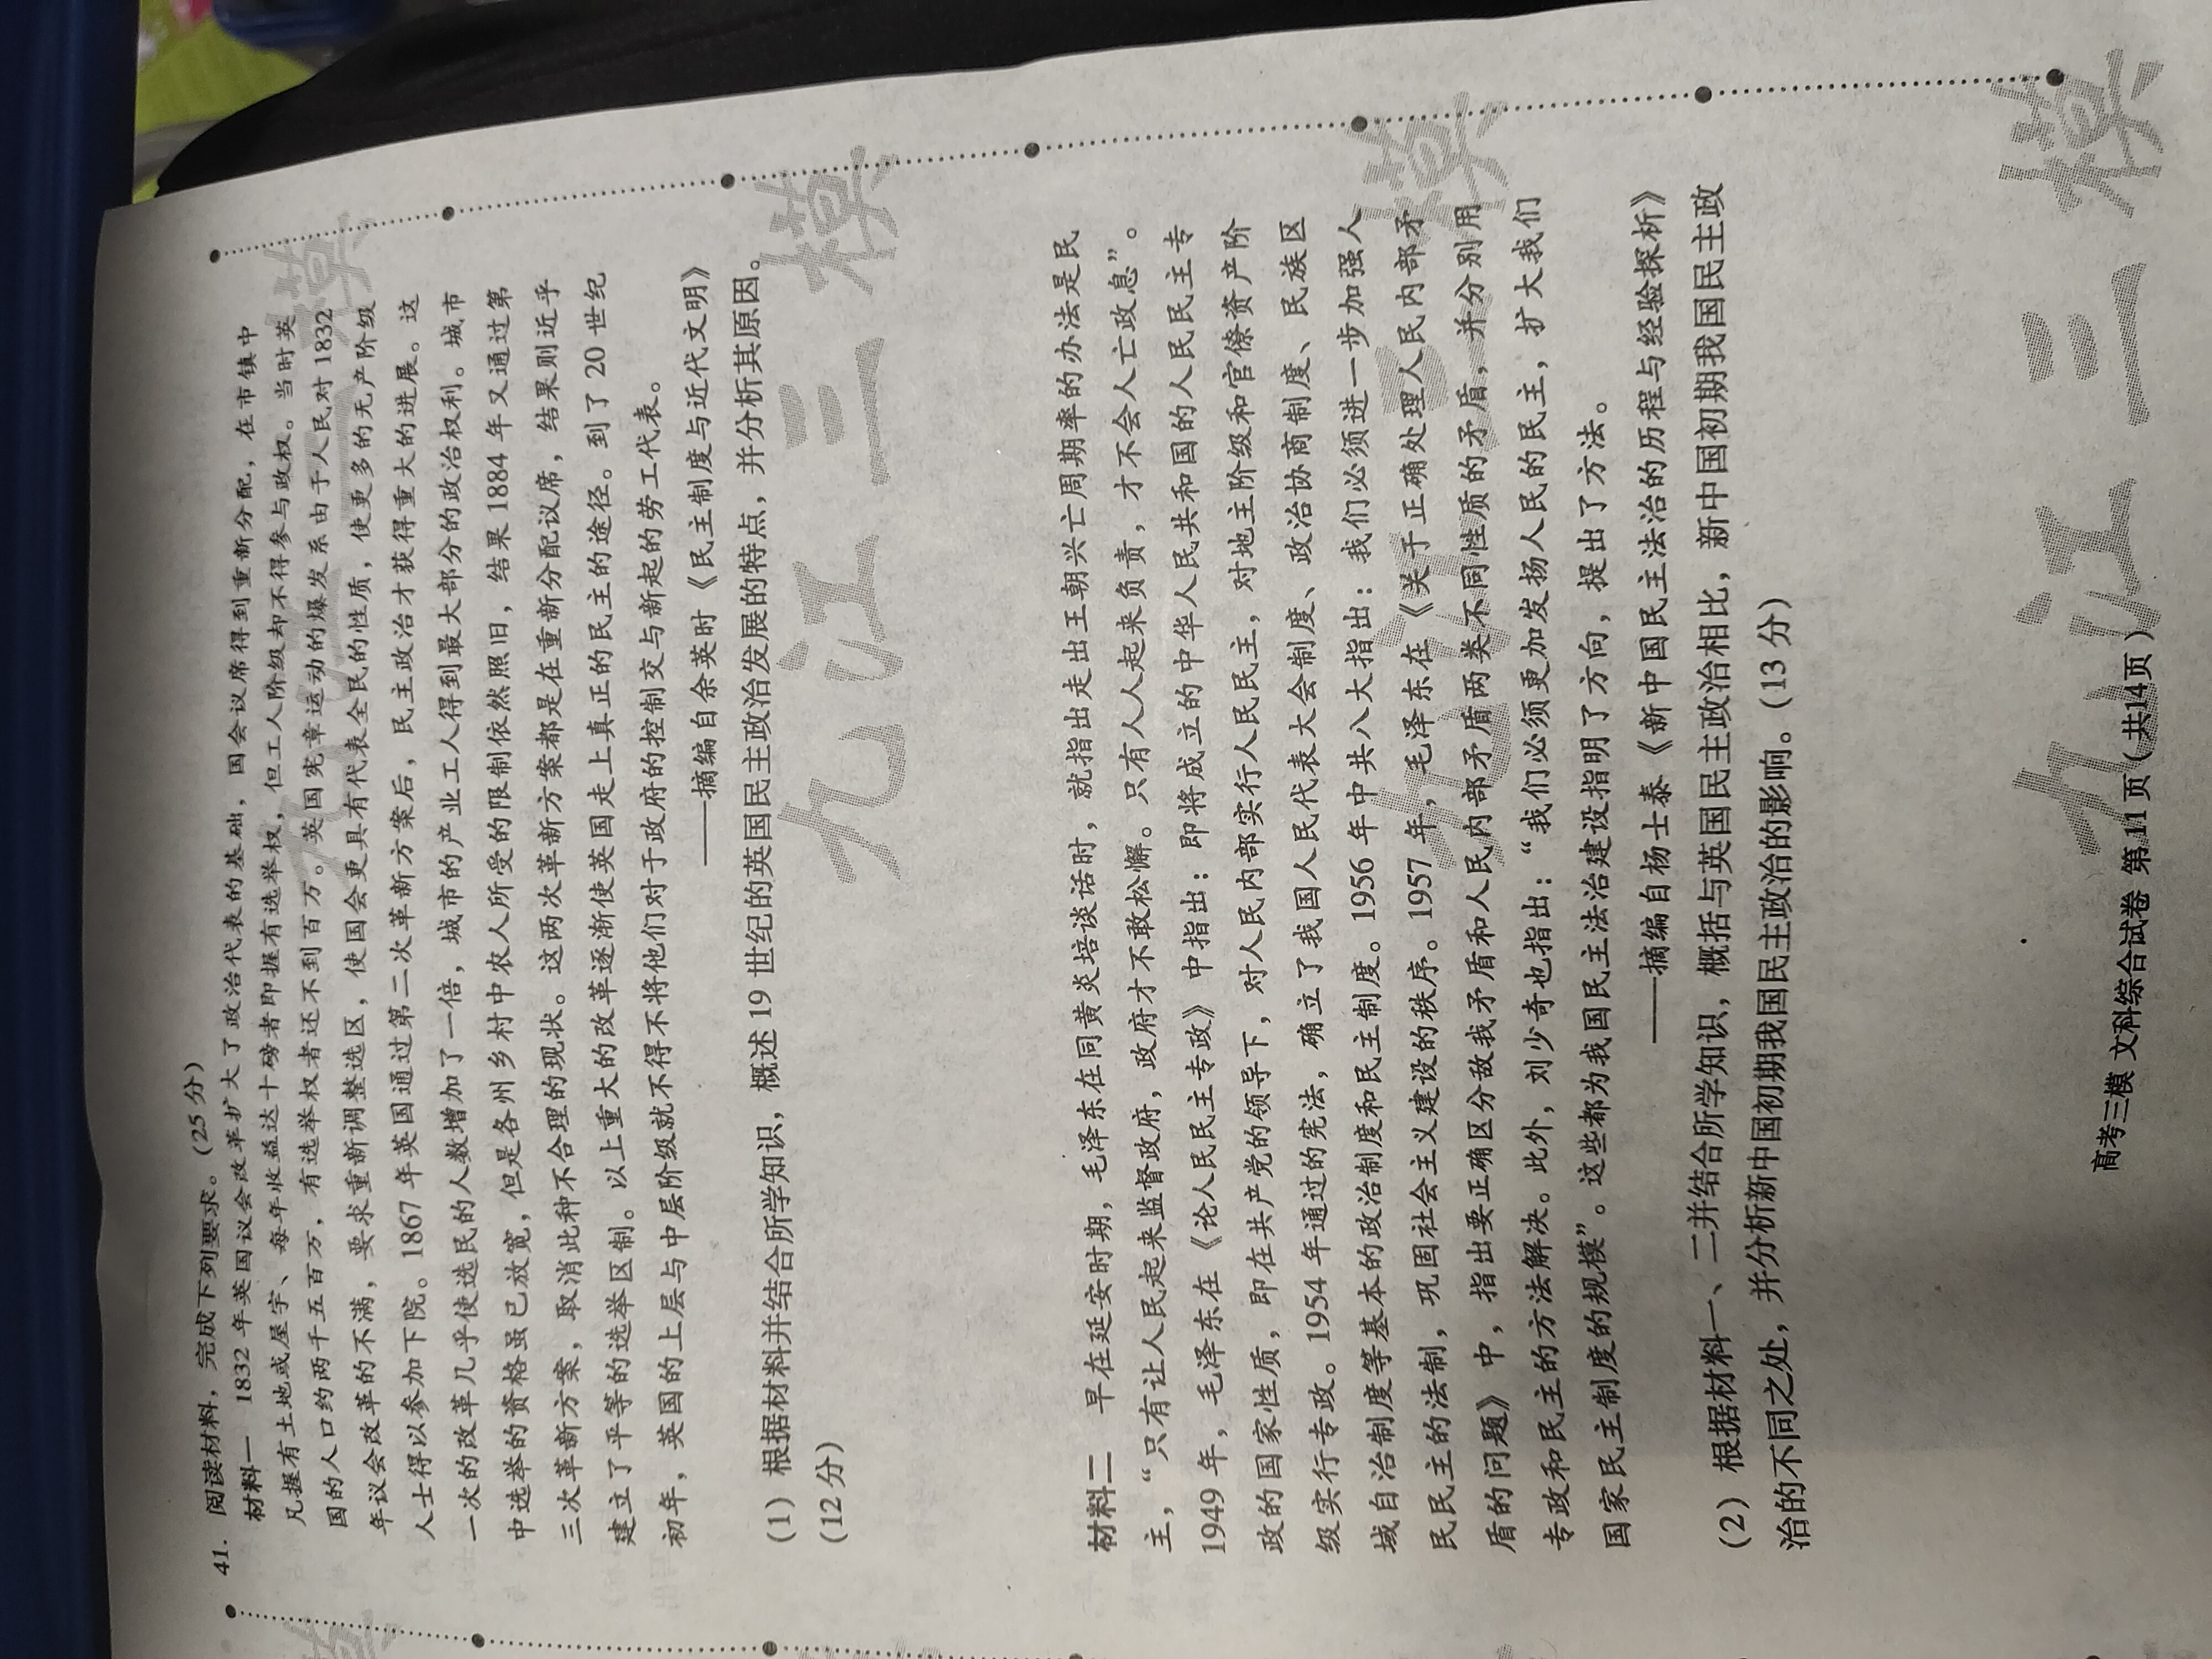 41. 阅读材料，完成下列要求。（25 分）
材料一 1832 年英国议会改革扩大了政治代表的基础，国会议席得到重新分配，在市镇中
凡握有土地或屋宇、每年收益达十磅者即握有选举权，但工人阶级却不得参与政权。当时英
国的人口约两千五百万，有选举权者还不到百万。英国宪章运动的爆发系由于人民对 1832
年议会改革的不满，要求重新调整选区，使国会更具有代表全民的性质，使更多的无产阶级
人士得以参加下院。1867 年英国通过第二次革新方案后，民主政治才获得重大的进展。这
一次的改革几乎使选民的人数增加了一倍，城市的产业工人得到最大部分的政治权利。城市
中选举的资格虽已放宽，但是各州乡村中农人所受的限制依然照旧，结果 1884 年又通过第
三次革新方案，取消此种不合理的现状。这两次革新方案都是在重新分配议席，结果则近乎
建立了平等的选举区制。以上重大的改革逐渐使英国走上真正的民主的途径。到了 20 世纪
初年，英国的上层与中层阶级就不得不将他们对于政府的控制交与新起的劳工代表。
——摘编自余英时《民主制度与近代文明》
（1）根据材料并结合所学知识，概述 19 世纪的英国民主政治发展的特点，并分析其原因。
（12 分）
材料二 早在延安时期，毛泽东在同黄炎培谈话时，就指出走出王朝兴亡周期率的办法是民
主，“只有让人民起来监督政府，政府才不敢松懈。只有人人起来负责，才不会人亡政息”。
1949 年，毛泽东在《论人民民主专政》中指出：即将成立的中华人民共和国的人民民主专
政的国家性质，即在共产党的领导下，对人民内部实行人民民主，对地主阶级和官僚资产阶
级实行专政。1954 年通过的宪法，确立了我国人民代表大会制度、政治协商制度、民族区
域自治制度等基本的政治制度和民主制度。1956 年中共八大指出：我们必须进一步加强人
民民主的法制，巩固社会主义建设的秩序。1957 年，毛泽东在《关于正确处理人民内部矛
盾的问题》中，指出要正确区分敌我矛盾和人民内部矛盾两类不同性质的矛盾，并分别用
专政和民主的方法解决。此外，刘少奇也指出：“我们必须更加发扬人民的民主，扩大我们
国家民主制度的规模”。这些都为我国民主法治建设指明了方向，提出了方法。
——摘编自杨士泰《新中国民主法治的历程与经验探析》
（2）根据材料一、二并结合所学知识，概括与英国民主政治相比，新中国初期我国民主政
治的不同之处，并分析新中国初期我国民主政治的影响。（13 分）
高考三模 文科综合试卷 第11页（共14页）
九江三模
九江三模
九江三模